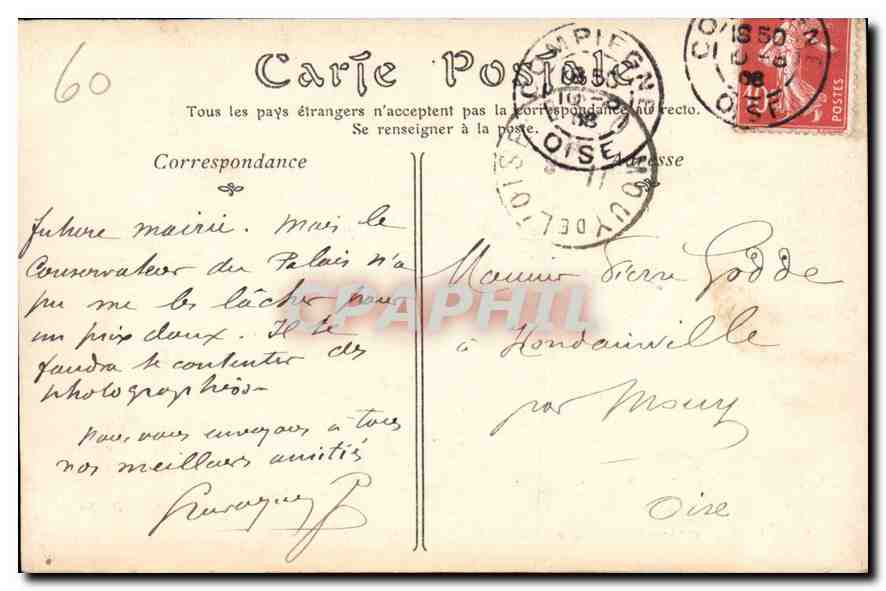 60
Carte Postale
Tous les pays étrangers n'acceptent pas la correspondance au recto.
Se renseigner à la poste.
Correspondance
Adresse
COMPIEGNE
18 50
08
OISE
MOUY DE L'OISE
11
COMPIEGNE
18 50
08
OISE
10
POSTES
future mairie. Mais le
Conservateur du Palais n'a
pu me les lâcher pour
un prix doux. Il te
faudra te contenter des
photographies
Nous vous envoyons à tous
nos meilleures amitiés
Monsieur Pierre Godde
à Hondainville
par Mouy
Oise
CPAPHIL